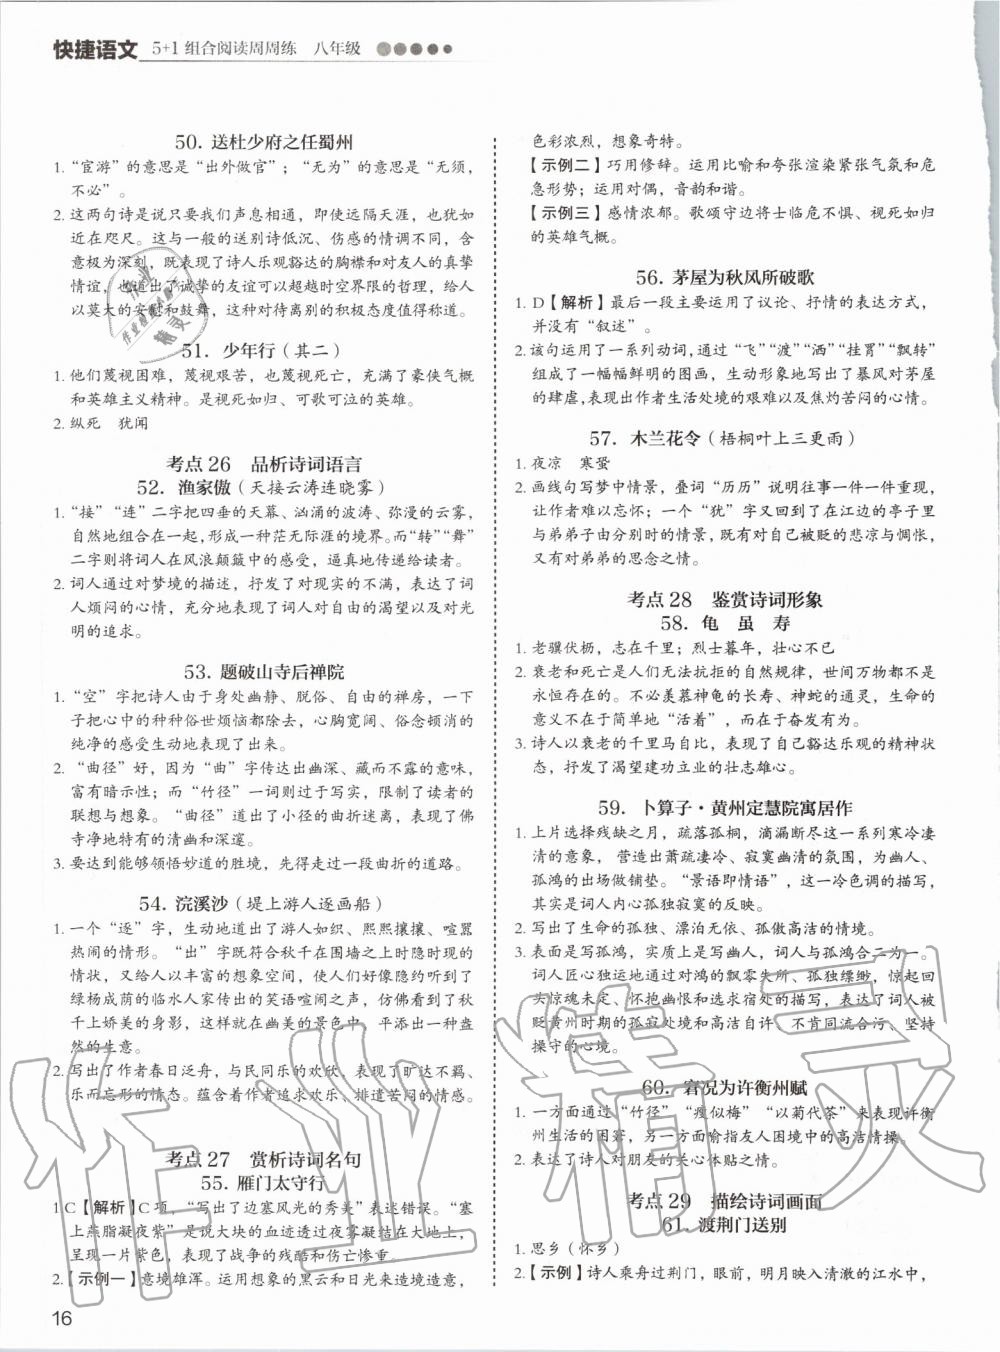 快捷语文 5+1 组合阅读周周练 八年级
50. 送杜少府之任蜀州
1. “宦游”的意思是“出外做官”；“无为”的意思是“无须，
不必”。
2. 这两句诗是说只要我们声息相通，即使远隔天涯，也犹如
近在咫尺。这与一般的送别诗低沉、伤感的情调不同，含
意极为深刻，既表现了诗人乐观豁达的胸襟和对友人的真挚
情谊，也道出了诚挚的友谊可以超越时空界限的哲理，给人
以莫大的安慰和鼓舞，这种对待离别的积极态度值得称道。
51. 少年行（其二）
1. 他们蔑视困难，蔑视艰苦，也蔑视死亡，充满了豪侠气概
和英雄主义精神。是视死如归、可歌可泣的英雄。
2. 纵死 犹闻
考点 26 品析诗词语言
52. 渔家傲（天接云涛连晓雾）
1. “接”“连”二字把四垂的天幕、汹涌的波涛、弥漫的云雾，
自然地组合在一起，形成一种茫无际涯的境界。而“转”“舞”
二字则将词人在风浪颠簸中的感受，逼真地传递给读者。
2. 词人通过对梦境的描述，抒发了对现实的不满，表达了词
人烦闷的心情，充分地表现了词人对自由的渴望以及对光
明的追求。
53. 题破山寺后禅院
1. “空”字把诗人由于身处幽静、脱俗、自由的禅房，一下
子把心中的种种俗世烦恼都除去，心胸宽阔、俗念顿消的
纯净的感受生动地表现了出来。
2. “曲径”好，因为“曲”字传达出幽深、藏而不露的意味，
富有暗示性；而“竹径”一词则过于写实，限制了读者的
联想与想象。“曲径”道出了小径的曲折迷离，表现了佛
寺净地特有的清幽和深邃。
3. 要达到能够领悟妙道的胜境，先得走过一段曲折的道路。
54. 浣溪沙（堤上游人逐画船）
1. 一个“逐”字，生动地道出了游人如织、熙熙攘攘、喧嚣
热闹的情形。“出”字既符合秋千在围墙之上时隐时现的
情状，又给人以丰富的想象空间，使人们好像隐约听到了
绿杨成荫的临水人家传出的笑语喧闹之声，仿佛看到了秋
千上娇美的身影，这样就在幽美的景色中，平添出一种盎
然的生意。
2. 写出了作者春日泛舟，与民同乐的欢欣，表现了旷达不羁、
乐而忘形的情态。蕴含着作者追求欢乐、排遣苦闷的情感。
考点 27 赏析诗词名句
55. 雁门太守行
1. C【解析】C 项，“写出了边塞风光的秀美”表述错误。“塞
上燕脂凝夜紫”是说大块的血迹透过夜雾凝结在大地上，
呈现一片紫色，表现了战争的残酷和伤亡惨重。
2.【示例一】意境雄浑。运用想象的黑云和日光来造境造意，
16
色彩浓烈，想象奇特。
【示例二】巧用修辞。运用比喻和夸张渲染紧张气氛和危
急形势；运用对偶，音韵和谐。
【示例三】感情浓郁。歌颂守边将士临危不惧、视死如归
的英雄气概。
56. 茅屋为秋风所破歌
1. D【解析】最后一段主要运用了议论、抒情的表达方式，
并没有“叙述”。
2. 该句运用了一系列动词，通过“飞”“渡”“洒”“挂罥”“飘转”
组成了一幅幅鲜明的图画，生动形象地写出了暴风对茅屋
的肆虐，表现出作者生活处境的艰难以及焦灼苦闷的心情。
57. 木兰花令（梧桐叶上三更雨）
1. 夜凉 寒蛩
2. 画线句写梦中情景，叠词“历历”说明往事一件一件重现，
让作者难以忘怀；一个“犹”字又回到了在江边的亭子里
与弟弟子由分别时的情景，既有对自己被贬的悲凉与惆怅，
又有对弟弟的思念之情。
考点 28 鉴赏诗词形象
58. 龟 虽 寿
1. 老骥伏枥，志在千里；烈士暮年，壮心不已
2. 衰老和死亡是人们无法抗拒的自然规律，世间万物都不是
永恒存在的。不必羡慕神龟的长寿、神蛇的通灵，生命的
意义不在于简单地“活着”，而在于奋发有为。
3. 诗人以衰老的千里马自比，表现了自己豁达乐观的精神状
态，抒发了渴望建功立业的壮志雄心。
59. 卜算子·黄州定慧院寓居作
1. 上片选择残缺之月，疏落孤桐，滴漏断尽这一系列寒冷凄
清的意象，营造出萧疏凄冷、寂寞幽清的氛围，为幽人、
孤鸿的出场做铺垫。“景语即情语”，这一冷色调的描写，
其实是词人内心孤独寂寞的反映。
2. 写出了生命的孤独、漂泊无依、孤傲高洁的情境。
3. 表面是写孤鸿，实质上是写幽人，词人与孤鸿合二为一。
词人匠心独运地通过对鸿的飘零失所、孤独缥缈，惊起回
头惊魂未定、怀抱幽恨和选求宿处的描写，表达了词人被
贬黄州时期的孤寂处境和高洁自许、不肯同流合污、坚持
操守的心境。
60. 窘况为许衡州赋
1. 一方面通过“竹径”“瘦似梅”“以菊代茶”来表现许衡
州生活的困窘，另一方面喻指友人困境中的高洁情操。
2. 表达了诗人对朋友的关心体贴之情。
考点 29 描绘诗词画面
61. 渡荆门送别
1. 思乡（怀乡）
2.【示例】诗人乘舟过荆门，眼前，明月映入清澈的江水中，
作业精灵